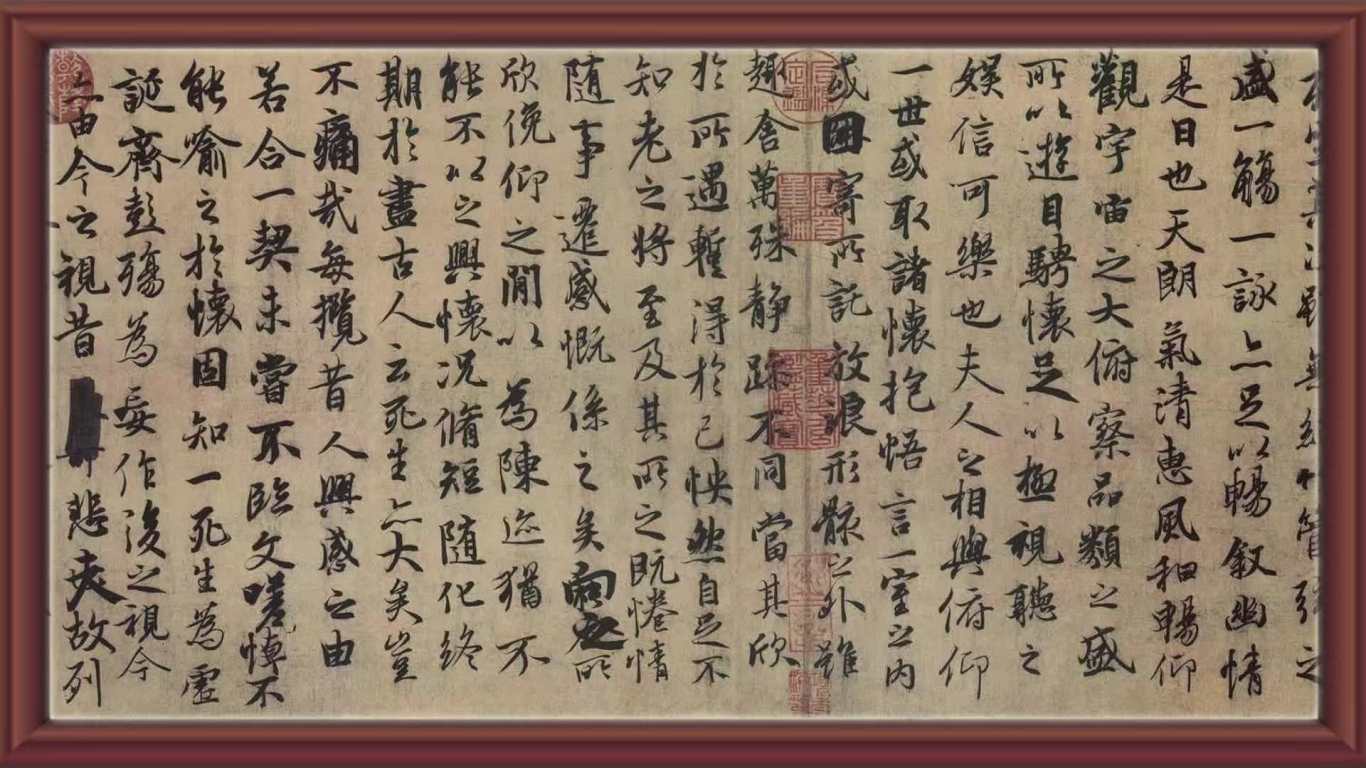 雖無絲竹管弦之
盛一觴一詠亦足以暢敘幽情
是日也天朗氣清惠風和暢仰
觀宇宙之大俯察品類之盛
所以遊目騁懷足以極視聽之
娛信可樂也夫人之相與俯仰
一世或取諸懷抱悟言一室之內
或因寄所託放浪形骸之外雖
趣舍萬殊靜躁不同當其欣
於所遇暫得於己怏然自足不
知老之將至及其所之既惓情
隨事遷感慨係之矣向之所
欣俛仰之閒以為陳迹猶不
能不以之興懷況脩短隨化終
期於盡古人云死生亦大矣豈
不痛哉每攬昔人興感之由
若合一契未嘗不臨文嗟悼不
能喻之於懷固知一死生為虛
誕齊彭殤為妄作後之視今
亦由今之視昔悲夫故列